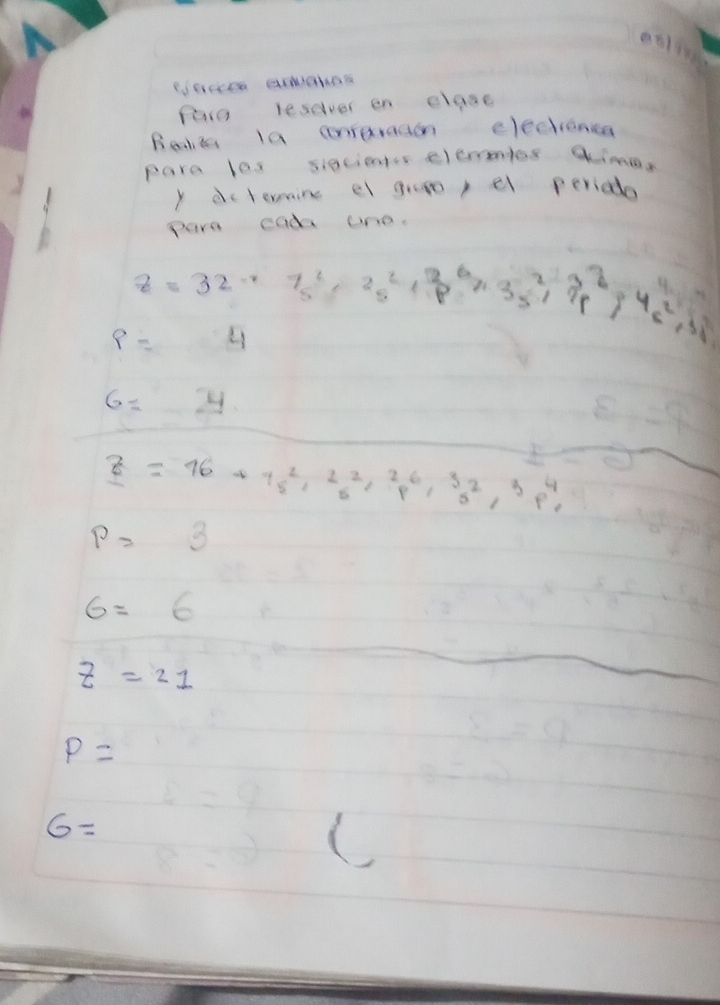 05/
Para resolver en clase
Realiza la configuración electrónica
para los siguientes elementos
y determine el grupo, el periodo
para cada uno.
Z = 32 → 1s², 2s², 2p⁶, 3s², 4s²,
P = 4
G = 4
Z = 16 → 1s², 2s², 2p⁶, 3s², 3p⁴,
P = 3
G = 6
Z = 21
P =
G =